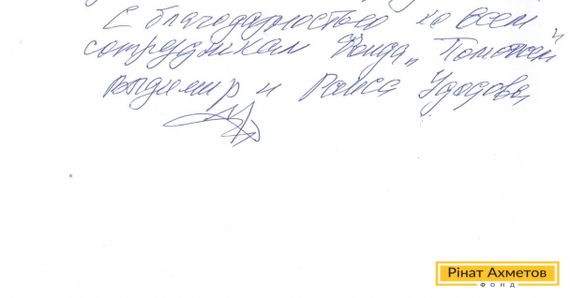 С благодарностью ко всем
сотрудникам Фонда „Поможем"
Владимир и Раиса Удодовы
Рінат Ахметов
ФОНД